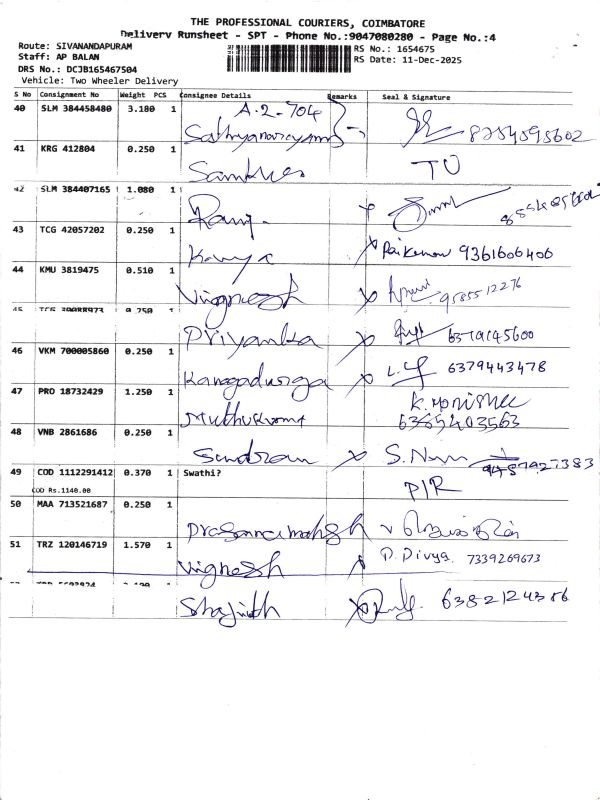 THE PROFESSIONAL COURIERS, COIMBATORE
Delivery Runsheet - SPT - Phone No.:9047080280 - Page No.:4
Route: SIVANANDAPURAM
Staff: AP BALAN
DRS No.: DCJB165467504
Vehicle: Two Wheeler Delivery
RS No.: 1654675
RS Date: 11-Dec-2025
S No Consignment No Weight PCS Consignee Details Remarks Seal & Signature
40 SLM 384458480 3.180 1 A-2-704
Sathyanarayanan 8754595602
41 KRG 412804 0.250 1
TO
42 SLM 384407165 1.080 1
Ramy
43 TCG 42057202 0.250 1
Kavya 9361606406
44 KMU 3819475 0.510 1
Vignesh 9585512276
45 0.750 1
Priyanka 6379145600
46 VKM 700005860 0.250 1
Kanagadurga 6379443478
47 PRO 18732429 1.250 1
K. Monishee
6385403563
48 VNB 2861686 0.250 1
Sundram
49 COD 1112291412 0.370 1 Swathi?
COD Rs.1140.00
P/R
50 MAA 713521687 0.250 1
Prasannamahesh
51 TRZ 120146719 1.570 1
Vignesh D. Divya 7339269673
Shajith 6382124386